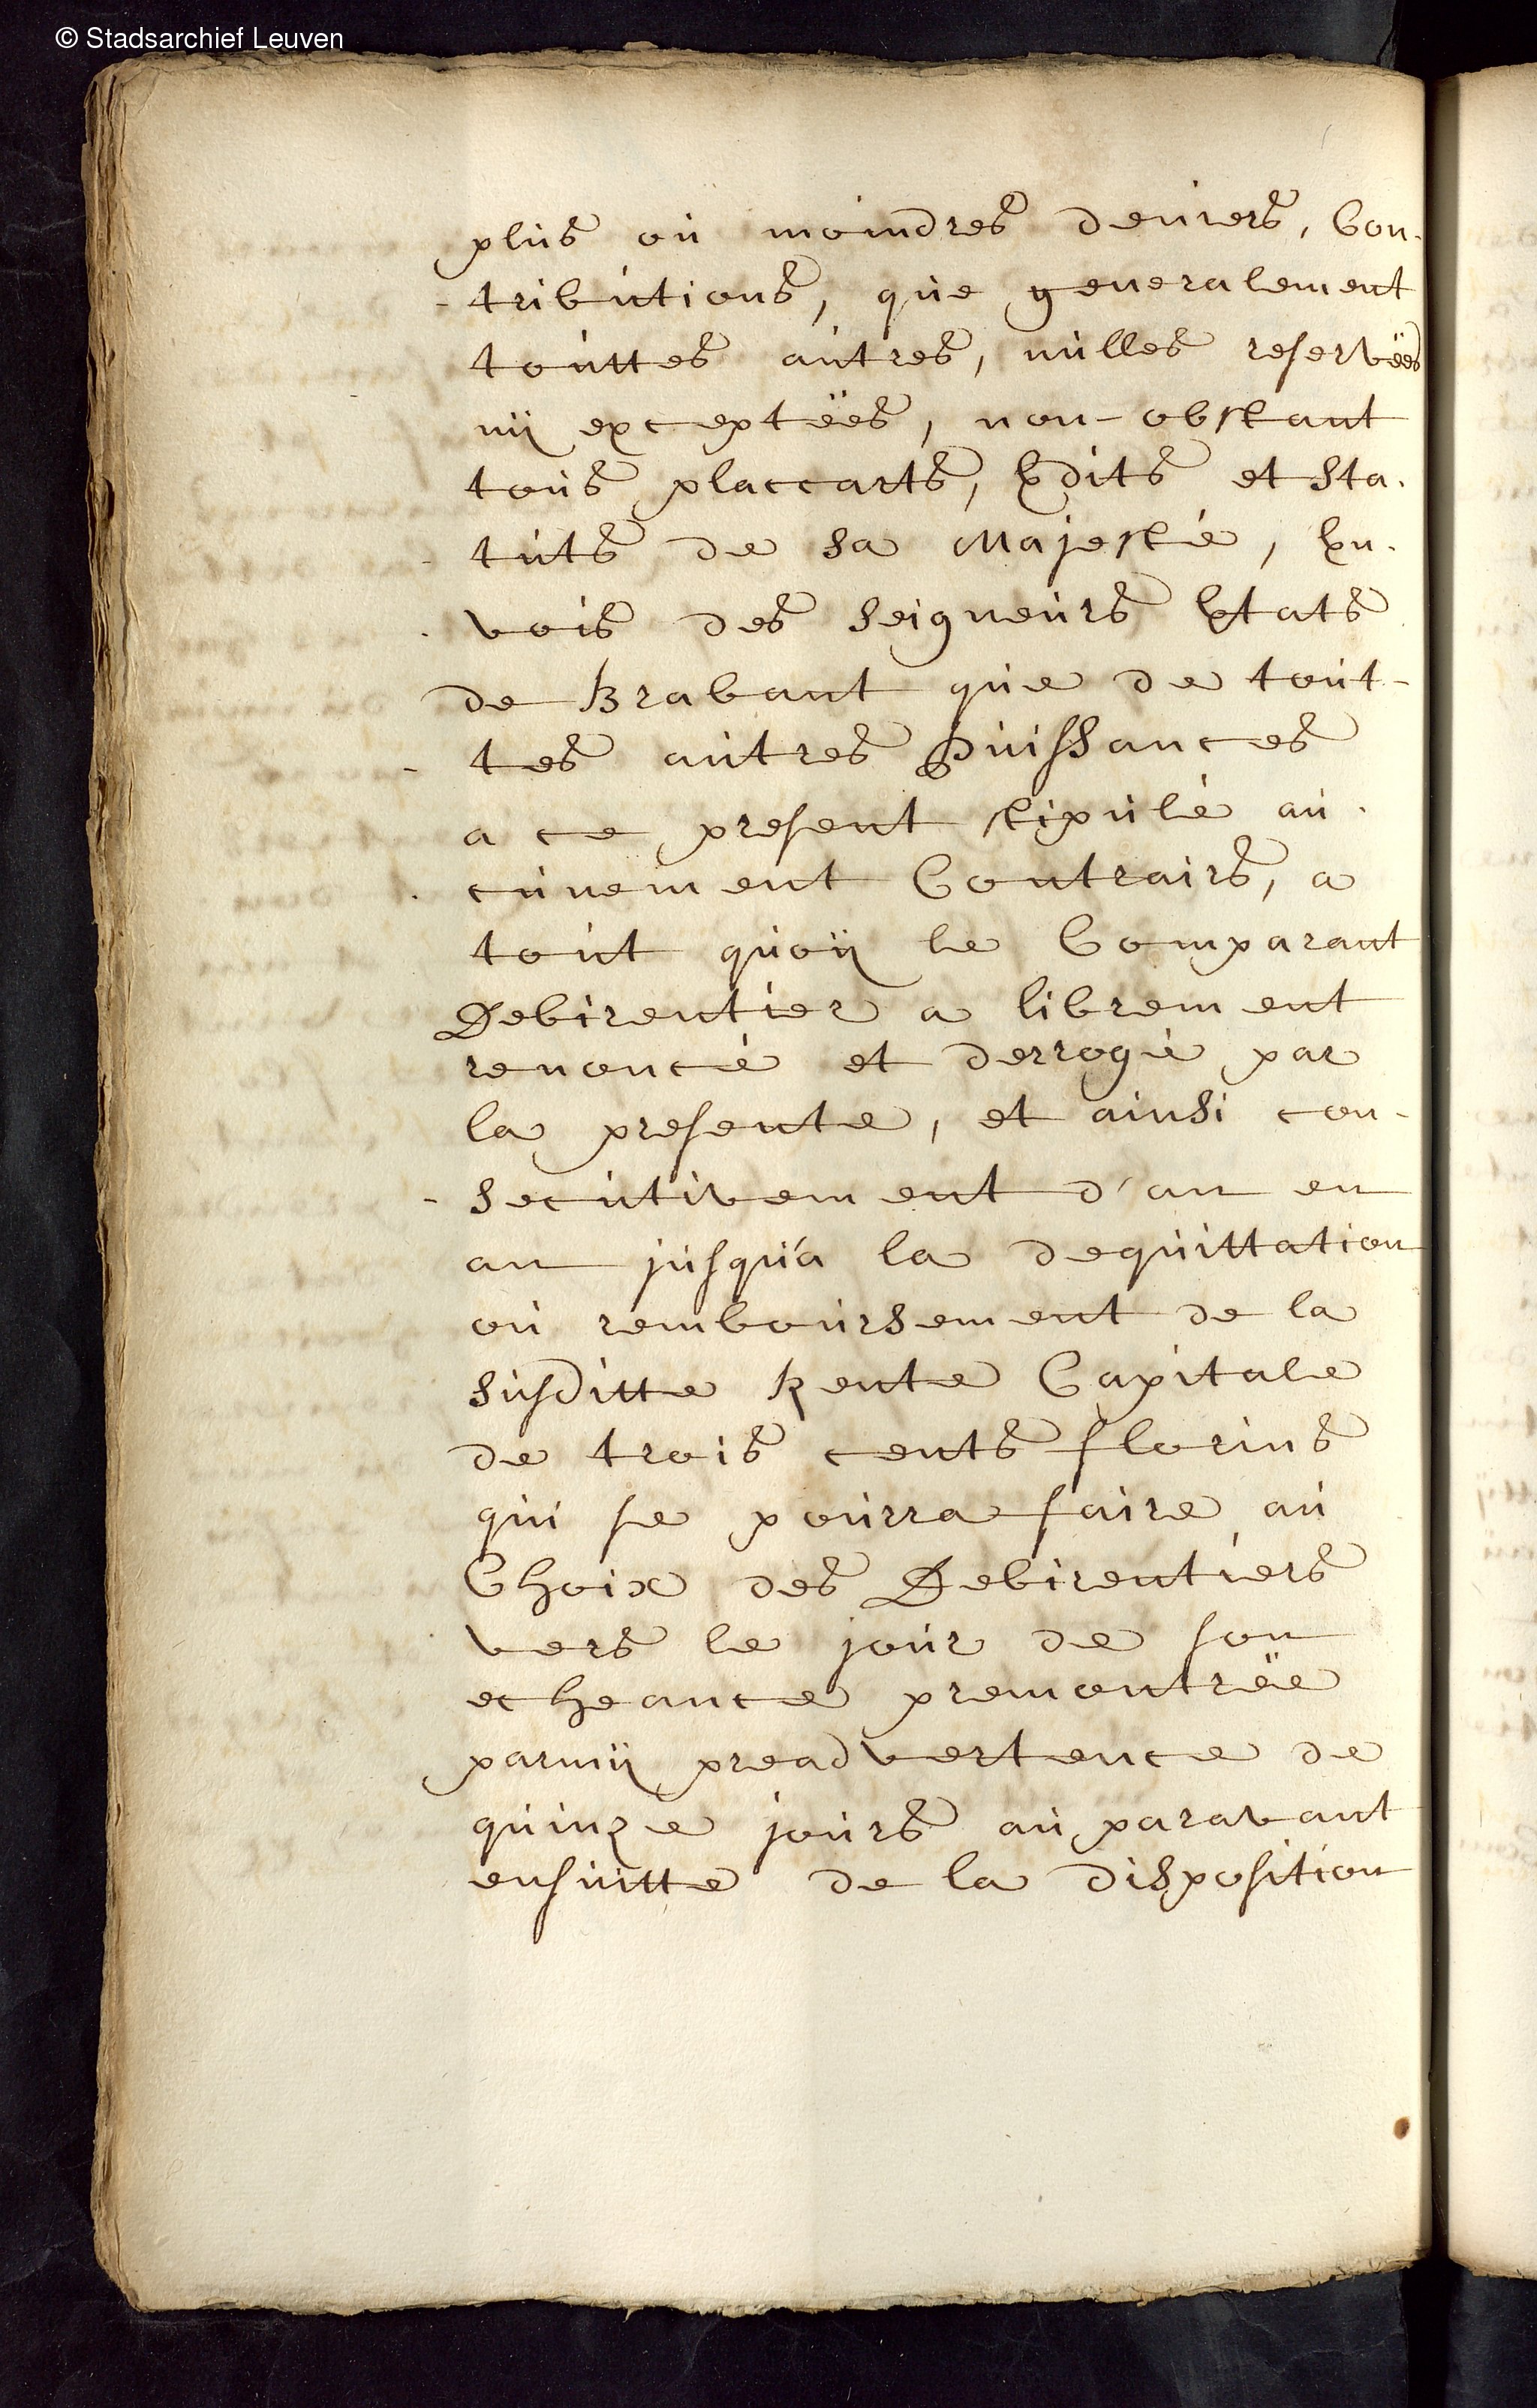 © Stadsarchief Leuven
plus ou moindres deniers, Con-
-tributions, que generalement
touttes autres, nulles reservëes
nÿ exceptëes, non-obstant
tous placcarts, Edits et sta-
-tuts de sa Majesté, En-
-vois des seigneurs Etats
de Brabant que de tout-
-tes autres Puissances
a ce present stipulé au-
-cunement Contrairs, a
tout quoÿ le Comparant
Debirentier a librement
renoncé et derrogé par
la presente, et ainsi con-
-secutivement d'an en
an jusqu'a la dequittation
ou remboursement de la
susditte Rente Capitale
de trois cents florins
qui se pourra faire, au
Choix des Debirentiers
vers le jour de son
echeance premontrëe
parmÿ preadvertence de
quinze jours au paravant
ensuitte de la disposition